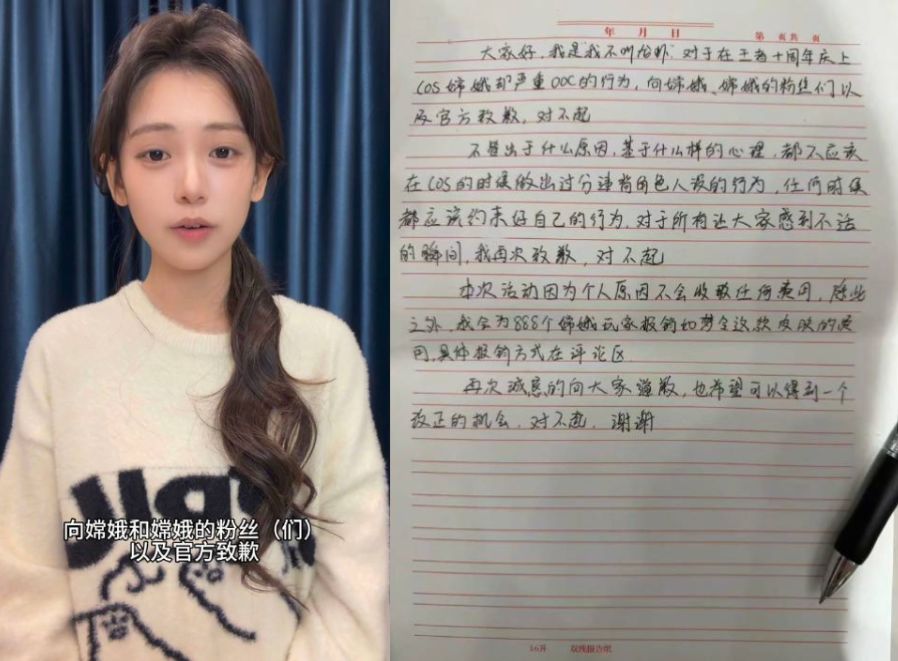 向嫦娥和嫦娥的粉丝（们）
以及官方致歉
年 月 日
第 页共 页
大家好,我是"我不叫".对于在王者十周年庆上
COS嫦娥却严重OOC的行为，向嫦娥、嫦娥的粉丝们以
及官方致歉，对不起
不管出于什么原因，基于什么样的心理，都不应该
在COS的时候做出过分违背角色人设的行为，任何时候
都应该约束好自己的行为.对于所有让大家感到不适
的瞬间,我再次致歉，对不起
本次活动因为个人原因不会收取任何费用，除此
之外，我会为888个嫦娥玩家报销如梦令这款皮肤的费
用,具体报销方式在评论区
再次诚恳的向大家道歉，也希望可以得到一个
改正的机会，对不起，谢谢
16开 双线报告纸